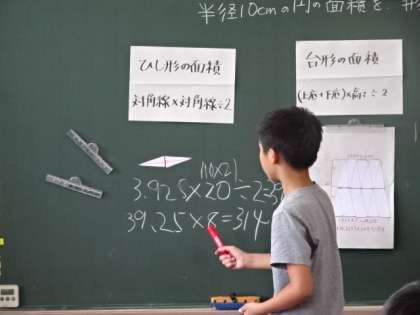 半径10cmの円の面積を、
ひし形の面積
対角線×対角線÷2
台形の面積
(上底+下底)×高さ÷2
(10×2)
3.925×20÷2
39.25×8=314